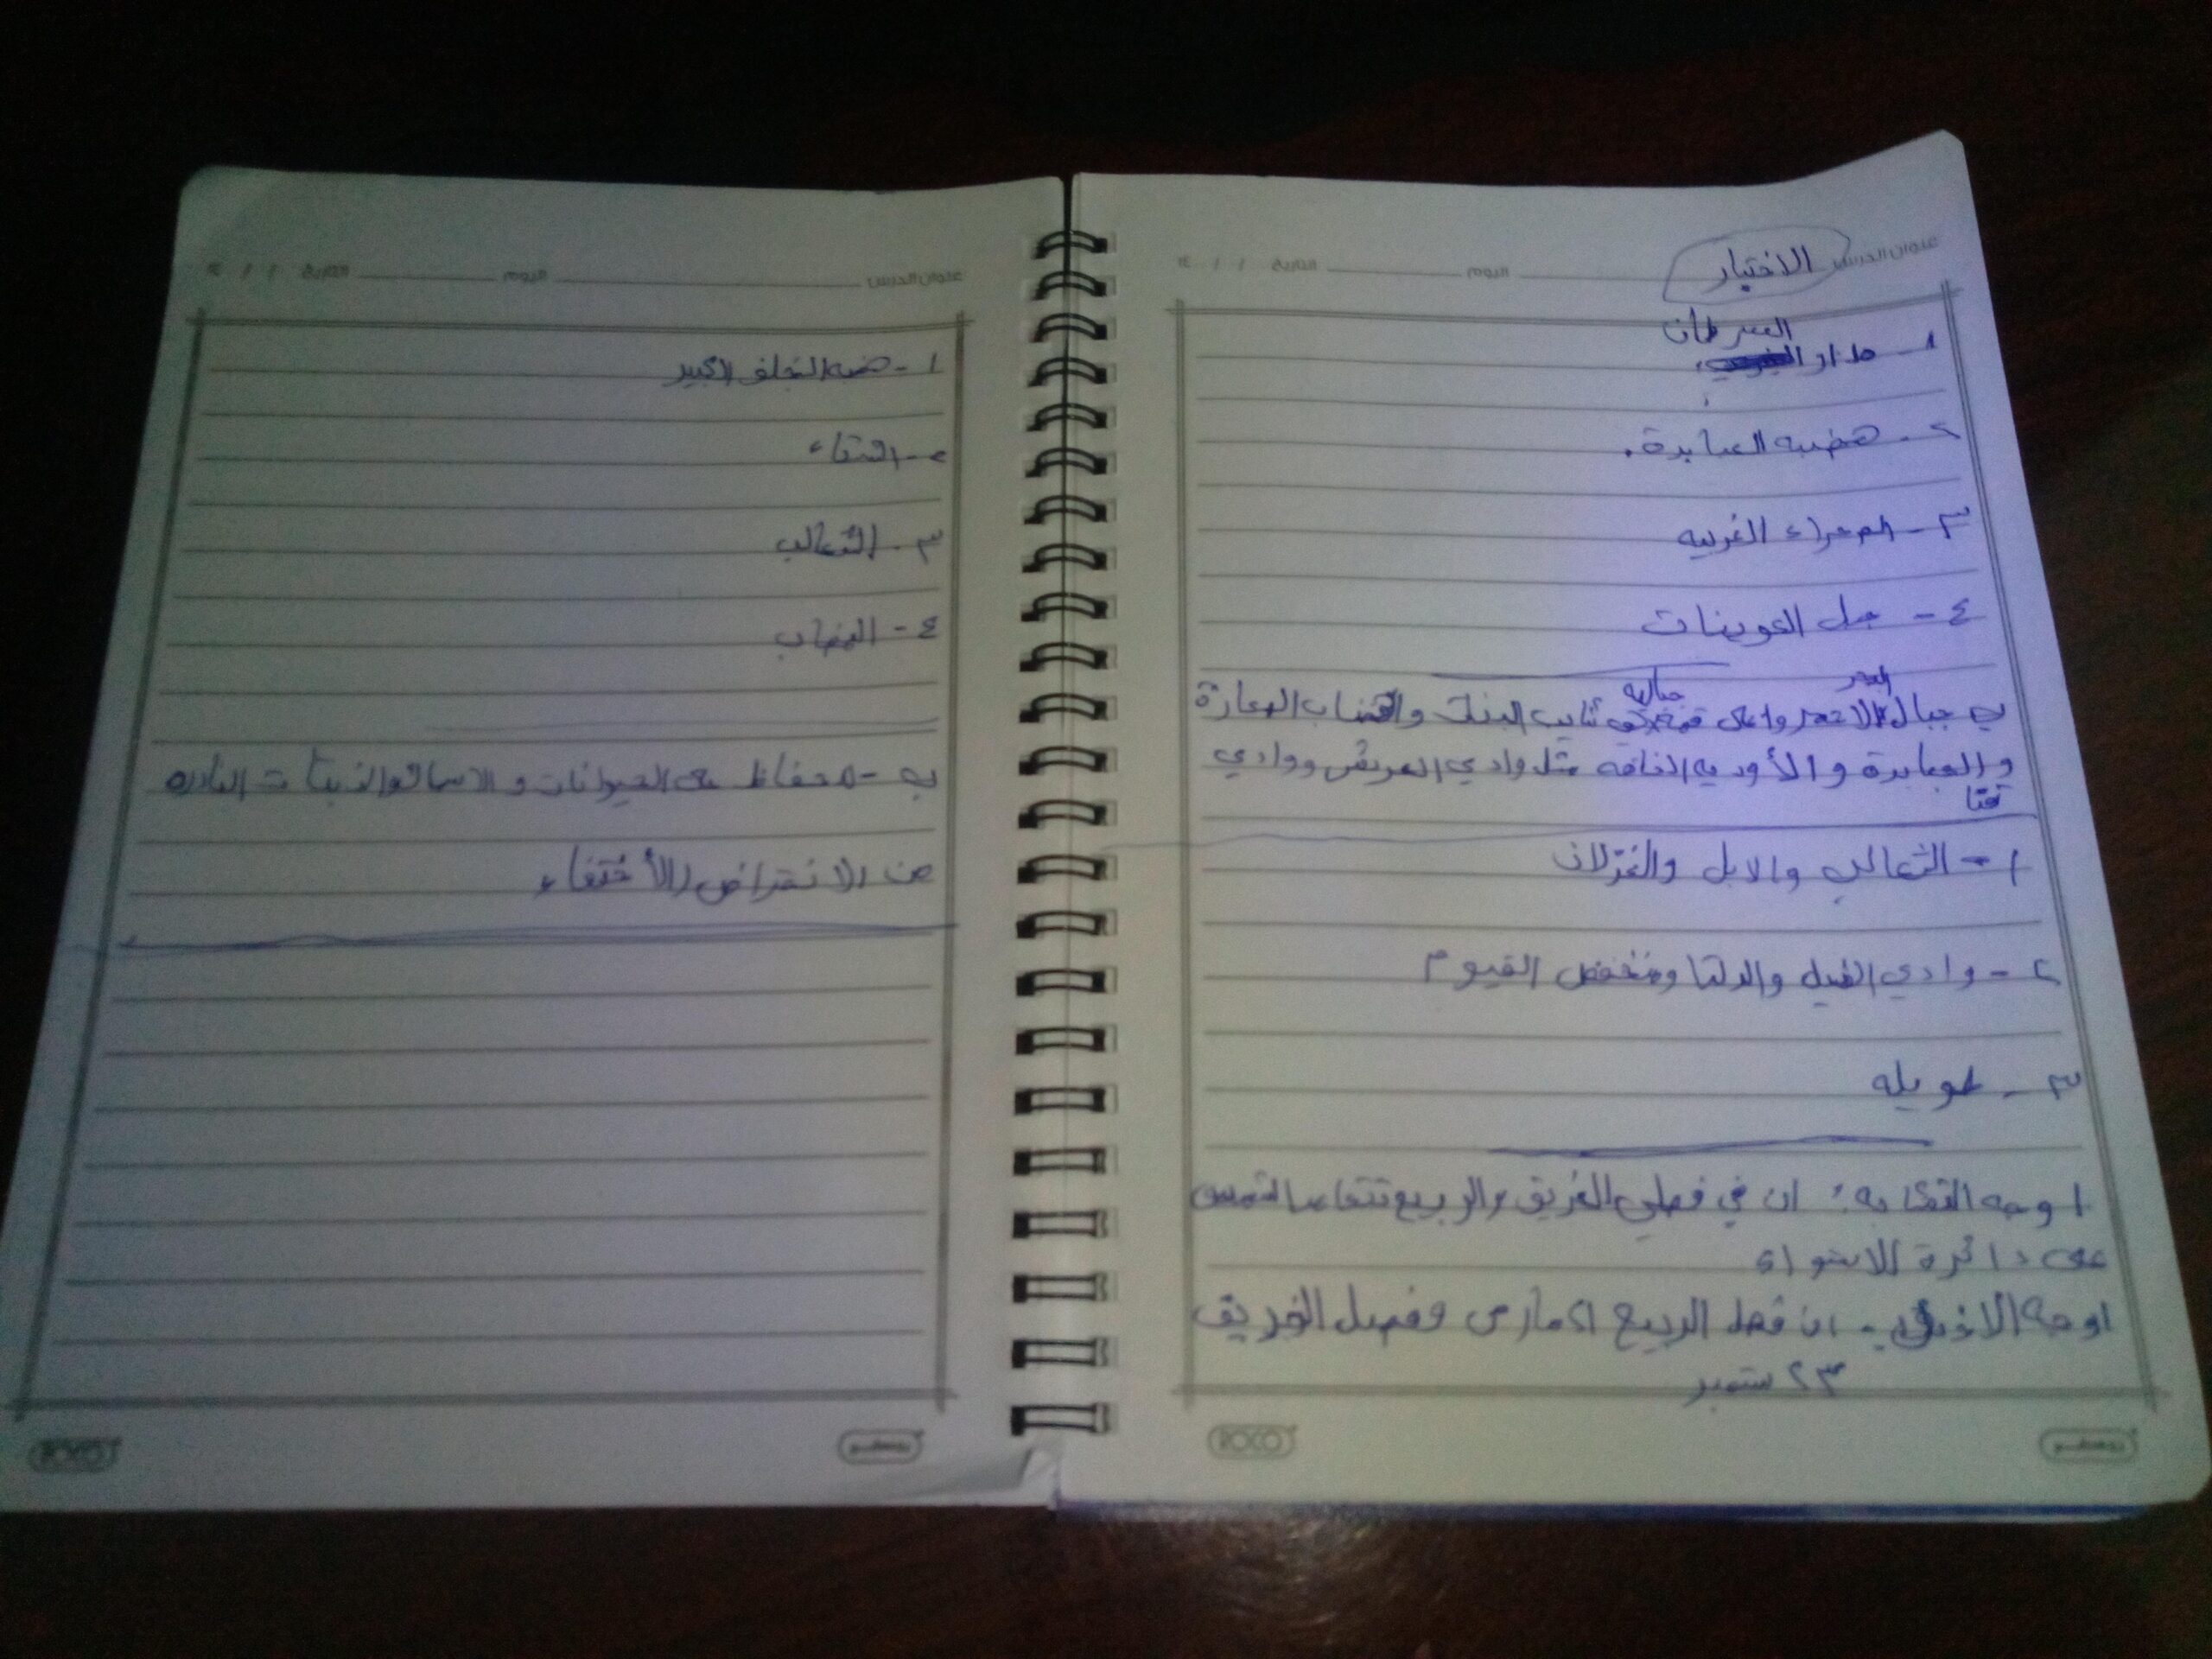 عنوان الدرس الاختبار اليوم التاريخ / / ١٤
السرطان
١- مدار
٢- هضبه العبابدة.
٣- الصحراء الغربيه
٤- جبل العوينات
البحر جباله
ب جبال الاحمر واعلى قمة شايب البنات والهضاب المعازة
والعبابدة والأوديه الجافه مثل وادي العريش ووادي
قنا
١- الثعالب والابل والغزلان
٢- وادي النيل والدلتا ومنخفض الفيوم
٣- طويله
اوجه التشابه: ان في فصلي الخريف والربيع تتعامد الشمس
على دائرة الاستواء
اوجه الاختلاف- ان فصل الربيع ٢١مارس وفصل الخريف
٢٣ سبتمبر
ROCO
عنوان الدرس اليوم التاريخ / / ١٤
١- هضبه الجلف الكبير
٢- الشتاء
٣- الثعالب
٤- الهضاب
ب- محفاظ على الحيوانات و الاسماك والنباتات النادره
من الانقراض والأختفاء
ROCO